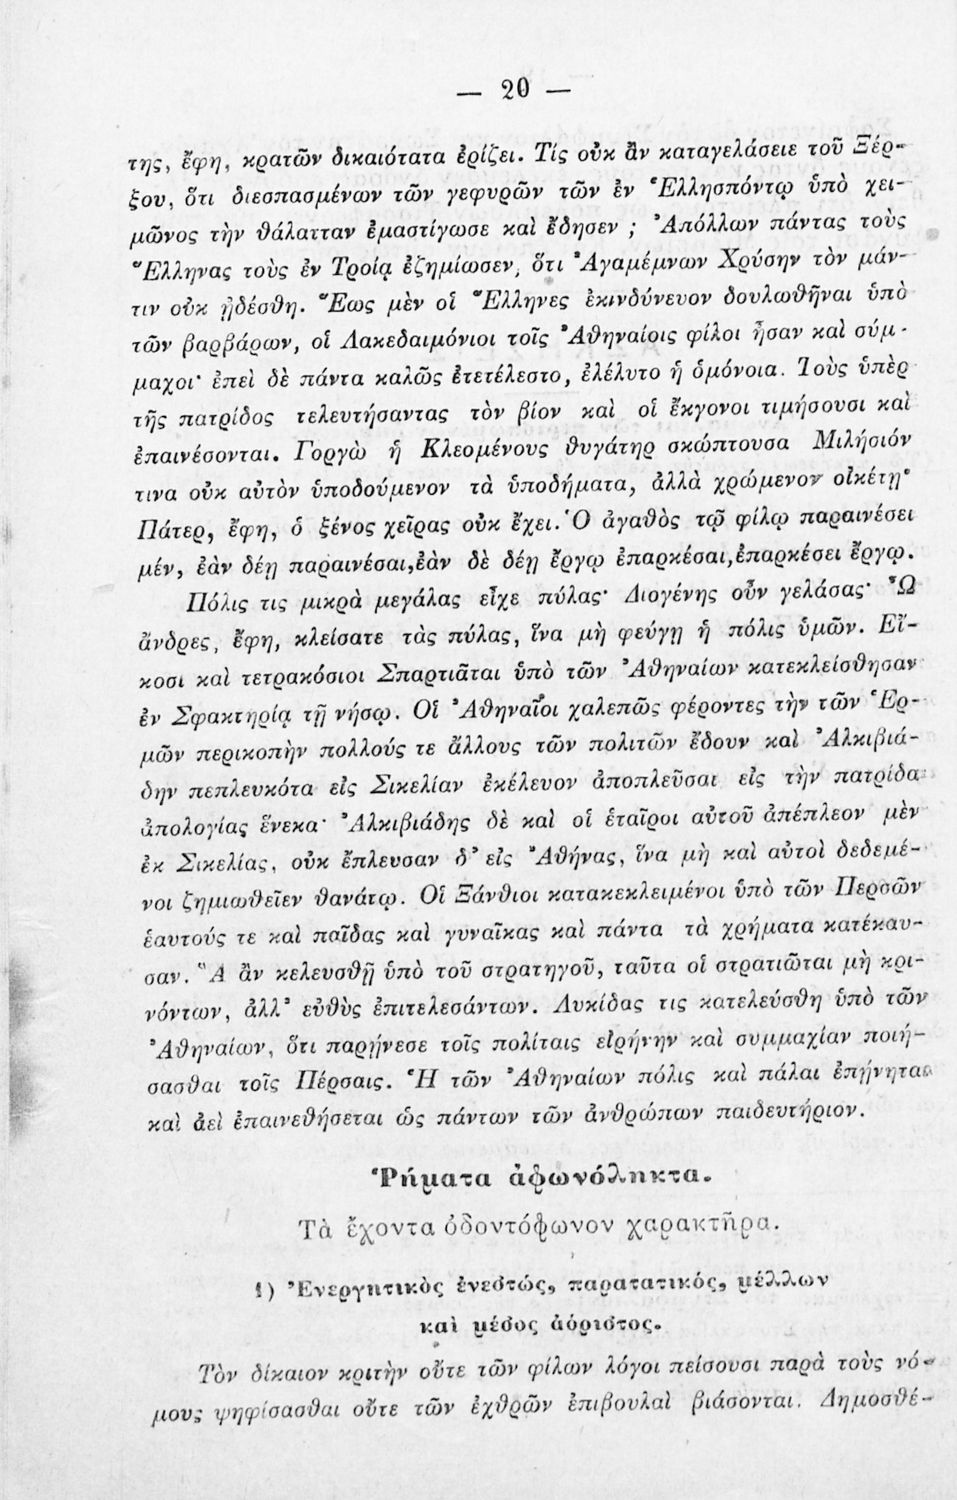 — 20 —
της, ἔφη, κρατῶν δικαιότατα ἐρίζει. Τίς οὐκ ἂν καταγελάσειε τοῦ Ξέρ-
ξου, ὅτι διεσπασμένων τῶν γεφυρῶν τῶν ἐν Ἑλλησπόντῳ ὑπὸ χει-
μῶνος τὴν θάλατταν ἐμαστίγωσε καὶ ἔδησεν ; Ἀπόλλων πάντας τοὺς
Ἕλληνας τοὺς ἐν Τροίᾳ ἐζημίωσεν, ὅτι Ἀγαμέμνων Χρύσην τὸν μάν-
τιν οὐκ ᾐδέσθη. Ἕως μὲν οἱ Ἕλληνες ἐκινδύνευον δουλωθῆναι ὑπὸ
τῶν βαρβάρων, οἱ Λακεδαιμόνιοι τοῖς Ἀθηναίοις φίλοι ἦσαν καὶ σύμ-
μαχοι· ἐπεὶ δὲ πάντα καλῶς ἐτετέλεστο, ἐλέλυτο ἡ ὁμόνοια. Τοὺς ὑπὲρ
τῆς πατρίδος τελευτήσαντας τὸν βίον καὶ οἱ ἔκγονοι τιμήσουσι καὶ
ἐπαινέσονται. Γοργὼ ἡ Κλεομένους θυγάτηρ σκώπτουσα Μιλήσιόν
τινα οὐκ αὐτὸν ὑποδούμενον τὰ ὑποδήματα, ἀλλὰ χρώμενον οἰκέτῃ·
Πάτερ, ἔφη, ὁ ξένος χεῖρας οὐκ ἔχει. Ὁ ἀγαθὸς τῷ φίλῳ παραινέσει
μέν, ἐὰν δέῃ παραινέσαι, ἐὰν δὲ δέῃ ἔργῳ ἐπαρκέσαι, ἐπαρκέσει ἔργῳ.
Πόλις τις μικρὰ μεγάλας εἶχε πύλας· Διογένης οὖν γελάσας· Ὦ
ἄνδρες, ἔφη, κλείσατε τὰς πύλας, ἵνα μὴ φεύγῃ ἡ πόλις ὑμῶν. Εἴ-
κοσι καὶ τετρακόσιοι Σπαρτιᾶται ὑπὸ τῶν Ἀθηναίων κατεκλείσθησαν
ἐν Σφακτηρίᾳ τῇ νήσῳ. Οἱ Ἀθηναῖοι χαλεπῶς φέροντες τὴν τῶν Ἑρ-
μῶν περικοπὴν πολλούς τε ἄλλους τῶν πολιτῶν ἔδουν καὶ Ἀλκιβιά-
δην πεπλευκότα εἰς Σικελίαν ἐκέλευον ἀποπλεῦσαι εἰς τὴν πατρίδα
ἀπολογίας ἕνεκα· Ἀλκιβιάδης δὲ καὶ οἱ ἑταῖροι αὐτοῦ ἀπέπλεον μὲν
ἐκ Σικελίας, οὐκ ἔπλευσαν δ' εἰς Ἀθήνας, ἵνα μὴ καὶ αὐτοὶ δεδεμέ-
νοι ζημιωθεῖεν θανάτῳ. Οἱ Ξάνθιοι κατακεκλειμένοι ὑπὸ τῶν Περσῶν
ἑαυτούς τε καὶ παῖδας καὶ γυναῖκας καὶ πάντα τὰ χρήματα κατέκαυ-
σαν. Ἃ ἂν κελευσθῇ ὑπὸ τοῦ στρατηγοῦ, ταῦτα οἱ στρατιῶται μὴ κρι-
νόντων, ἀλλ' εὐθὺς ἐπιτελεσάντων. Λυκίδας τις κατελεύσθη ὑπὸ τῶν
Ἀθηναίων, ὅτι παρῄνεσε τοῖς πολίταις εἰρήνην καὶ συμμαχίαν ποιή-
σασθαι τοῖς Πέρσαις. Ἡ τῶν Ἀθηναίων πόλις καὶ πάλαι ἐπῄνηται
καὶ ἀεὶ ἐπαινεθήσεται ὡς πάντων τῶν ἀνθρώπων παιδευτήριον.
Ῥήματα ἀφωνόληκτα.
Τὰ ἔχοντα ὀδοντόφωνον χαρακτῆρα.
1) Ἐνεργητικὸς ἐνεστώς, παρατατικός, μέλλων
καὶ μέσος ἀόριστος.
Τὸν δίκαιον κριτὴν οὔτε τῶν φίλων λόγοι πείσουσι παρὰ τοὺς νό-
μους ψηφίσασθαι οὔτε τῶν ἐχθρῶν ἐπιβουλαὶ βιάσονται. Δημοσθέ-